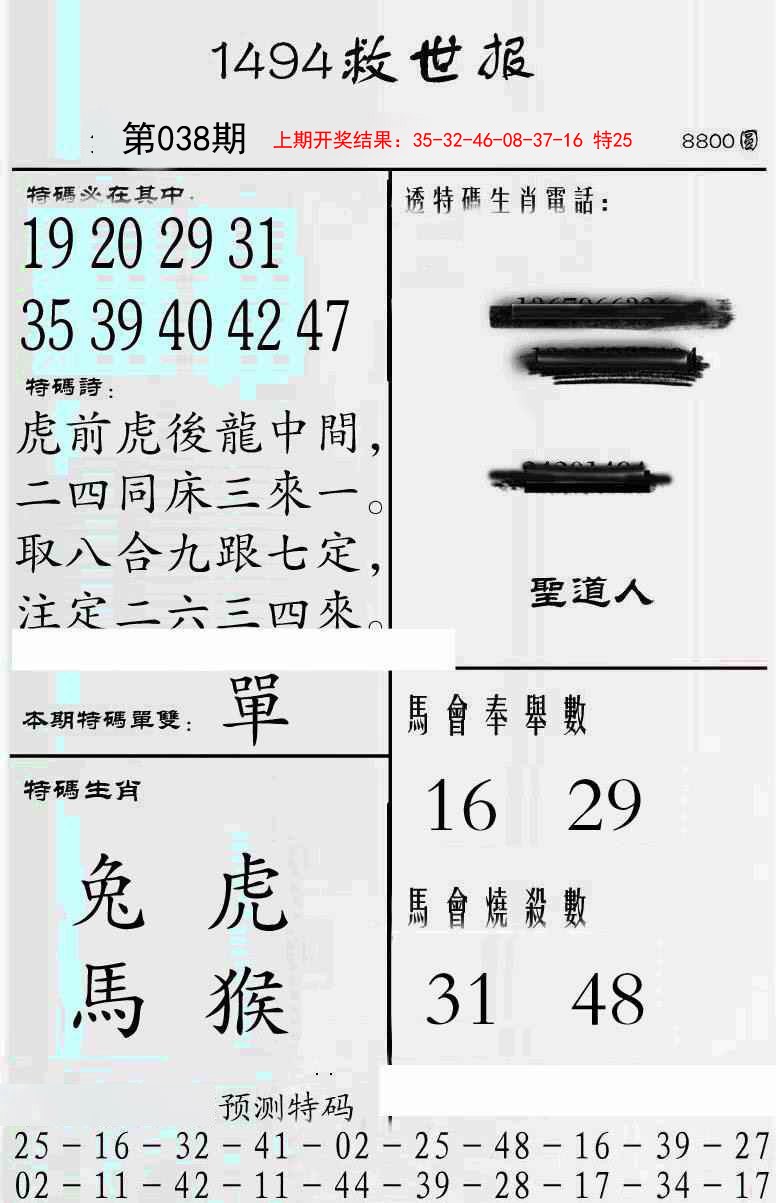 1494救世报
第038期 上期开奖结果：35-32-46-08-37-16 特25 8800圓
特碼必在其中：
19 20 29 31
35 39 40 42 47
特碼詩：
虎前虎後龍中間，
二四同床三來一。
取八合九跟七定，
注定二六三四來。
本期特碼單雙：單
特碼生肖
兔 虎
馬 猴
透特碼生肖電話：
聖道人
馬會奉舉數
16 29
馬會燒殺數
31 48
预测特码
25－16－32－41－02－25－48－16－39－27
02－11－42－11－44－39－28－17－34－17